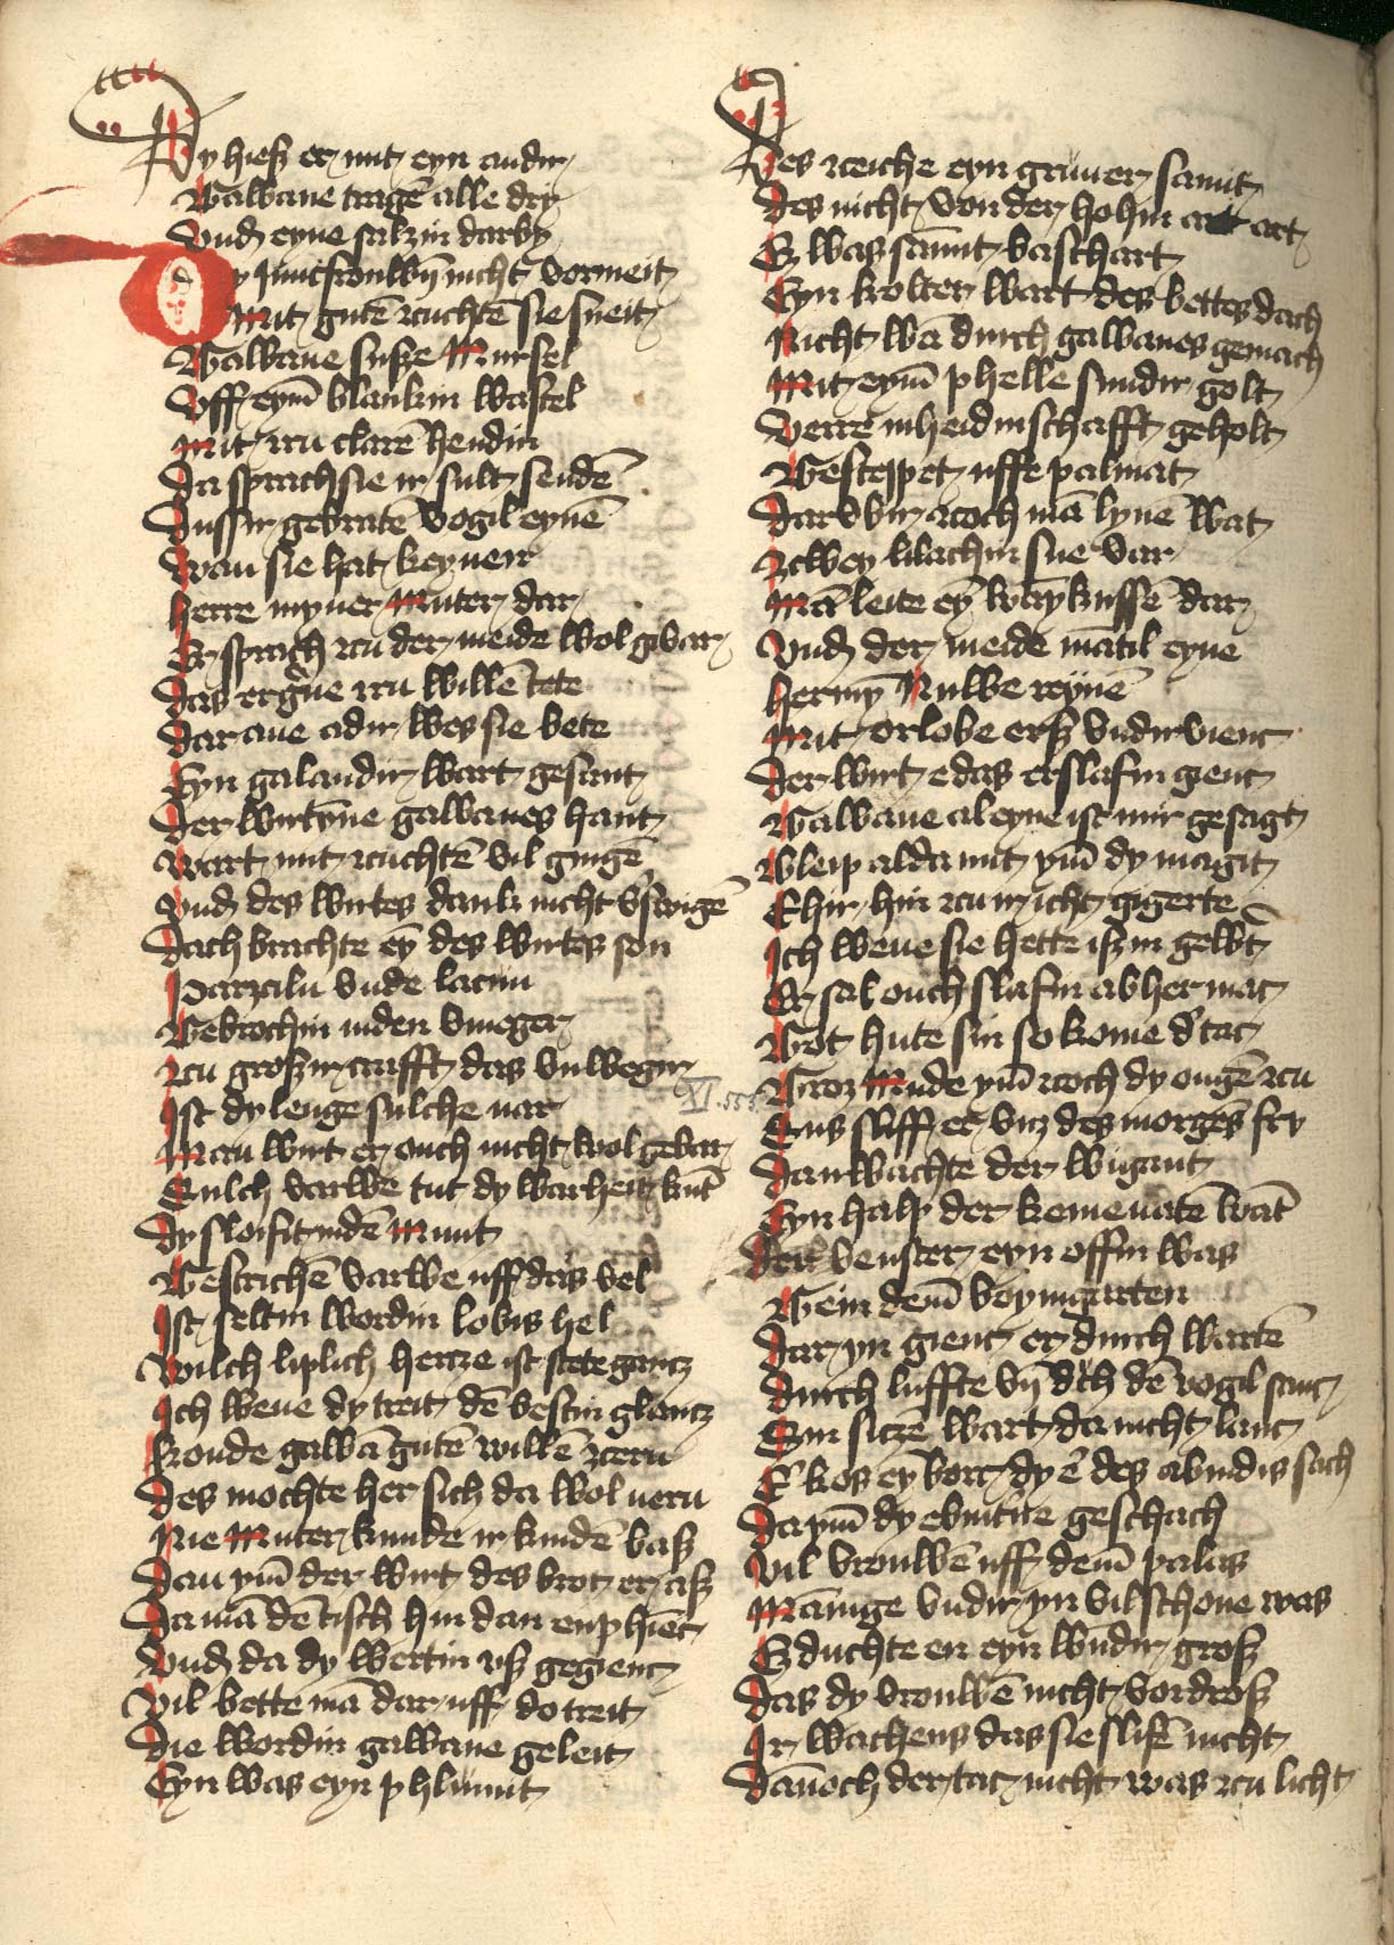 Dy hiesz er mit eyn andir
Gawane tragē alle dry
Vnd eyne salzin darby
Dy Juncfrouwē nicht vormeit
Mit gutē zcuchtē sie sneit
Gawane susze Mursel
Vff eym̄ blankin wastel
Mit ırn clarē hendin
Da sprach sie ir sult sendē
Dussir gebratē vogil eynē
Wan sie hat keynen
Herre myner Muter dar
Er sprach zcu der meide wol gevar
Das er gerne irn willē tete
Dar ane adir wes sie bete
Eyn galandir wart gesant
Der wirtyne gawanes hant
Wart mit zcuchtē vil gnigē
Vnd des wirtes dank nicht vˢswigē
Dach brachte eȳ des wirtes son
Parzaln vnde lactun
Gebrochin in den vineger
Zcu groszir crafft das vnwegir
Ist dy lenge sulche nar
Man wirt er ouch nicht wol gevar
Sulch varwe tut dy warheit kūt
Dy sloifit in dē Munt
Gestrichē varwe uff das vel
Ist seltin wordin lobis hel
Wilch wiplich hercze ist stete gancz
Ich wene dy treit dē bestin glancz
Konde gawā gutē willē zcern
Des mochte her sich da wol nern
Nie Muter kunde ir kindē basz
Dan ym̄ der wirt des brot er asz
Da mā dē tisch hin dan enphiēc
Vnd da dy wertin vsz gegienc
Vil bette mā dar uff do treit
Die wordin gawane geleit
Eyn was eyn phlumit
Des zciche eyn gruner samit
Des nicht von der hohin art
Ez was samīt basthart
Eyn kolter wart des bettes dach
Nicht wā durch gawanes gemach
Mit eym̄ phelle sundir golt
Verre in heidinschafft geholt
Gesteppet uffe palmat
Dar vbir zcoch mā lynē wat
Zcwey lilachin sne var
Mā leite eȳ wāgkussē dar
Vnd der meide mātil eyne
Hermȳ Nuwe reyne
Mit orlobe ersz vndirvienc
Der wirt e das er slafin gienc
Gawane aleyne ist mir gesagt
Bleip alda mit ym̄ dy magit
E hir hin zcu ir icht gigerte
Ich wene sie hette isz in gewˢt
Er sal ouch slafin ab her mac
Got hute sin so kome dˢ tac
Groz Mude ym̄ zcoch dy ougē zcu
Sus sliff er bicz des morgēs fry
Dan wachte der wigant
Eyn halp der kemenatē wāt
Der venster eyn offin was
Gein dem̄ boymgarten
Dar yn gienc er durch wartē
Durch luffte vn̄ dˢch dē vogil sanc
Sin siczē wart da nicht lanc
Eˢ kos eȳ borc dy eˢ des abindis sach
Da ym̄ dy ebintüre geschach
Vil vrouwē uff dem̄ palas
Mānige vndir yn vil schone was
Ez duchte en eyn wundir grosz
Das dy vrouwē nicht vordrosz
Ir wachens das sie slifē nicht
Dānoch der tac nicht was zcu licht
XI.553.